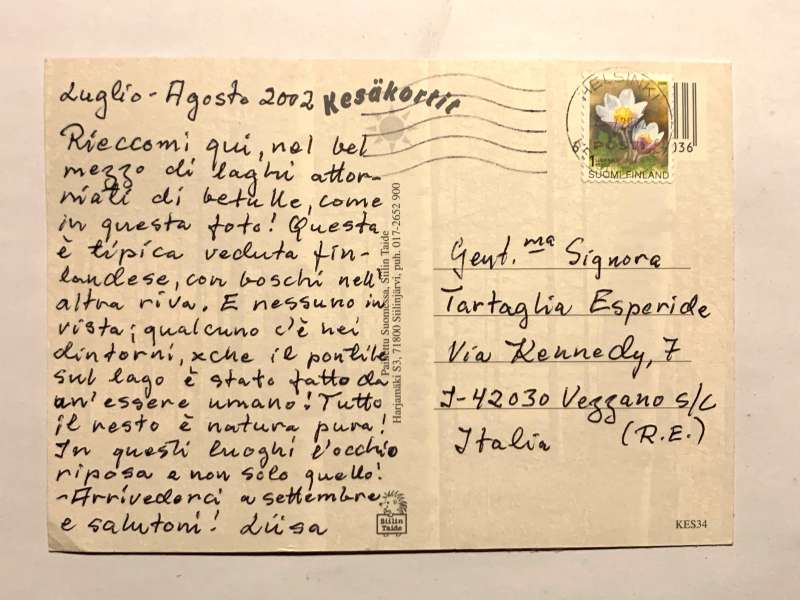 Luglio - Agosto 2002
Kesäkortit
Rieccomi qui, nel bel
mezzo di laghi attor-
niati di betulle, come
in questa foto! Questa
è tipica veduta fin-
landese, con boschi nell'
altra riva. E nessuno in
vista; qualcuno c'è nei
dintorni, xche il pontile
sul lago è stato fatto da
un'essere umano! Tutto
il resto è natura pura!
In questi luoghi l'occhio
riposa e non solo quello!
-Arrivederci a settembre
e salutoni! Liisa
Painettu Suomessa, Siilin Taide
Harjamäki S3, 71800 Siilinjärvi, puh. 017-2652 900
Siilin
Taide
HELSINKI
POSTI
1
SUOMI FINLAND
036
Gent.ma Signora
Tartaglia Esperide
Via Kennedy, 7
I-42030 Vezzano s/C
Italia (R.E.)
KES34